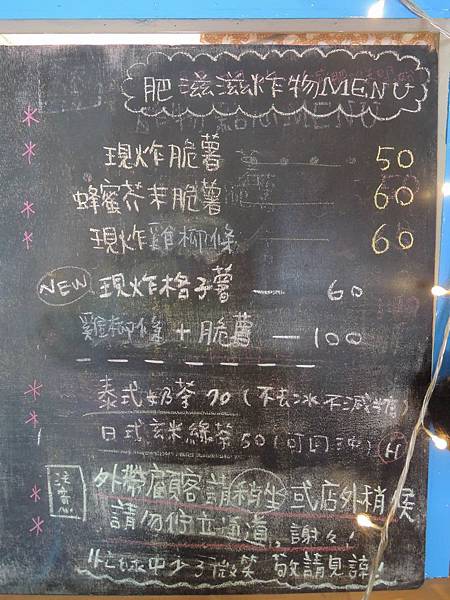 肥滋滋炸物MENU
現炸脆薯 50
蜂蜜芥茉脆薯 60
現炸雞柳條 60
NEW 現炸格子薯 — 60
雞柳條+脆薯 — 100
泰式奶茶 70 (不去冰不減糖)
日式玄米綠茶 50 (可回沖) H
注意! 外帶顧客請稍坐或店外稍候
請勿佇立通道,謝々!
忙碌中少了微笑 敬請見諒!